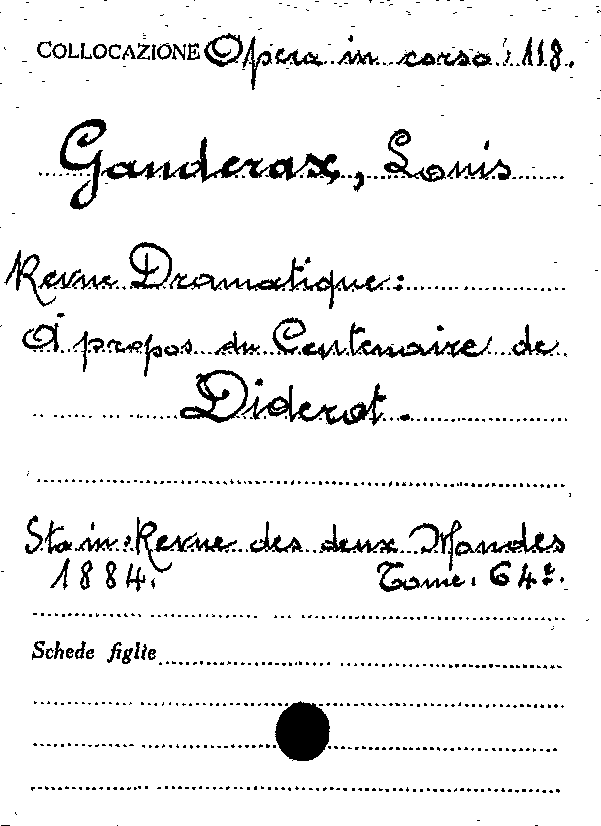 COLLOCAZIONE Opera in corso 118.
Ganderax, Louis
Revue Dramatique:
À propos du Centenaire de
Diderot.
Sta in: Revue des deux Mondes
1884. Tome. 64º.
Schede figlie